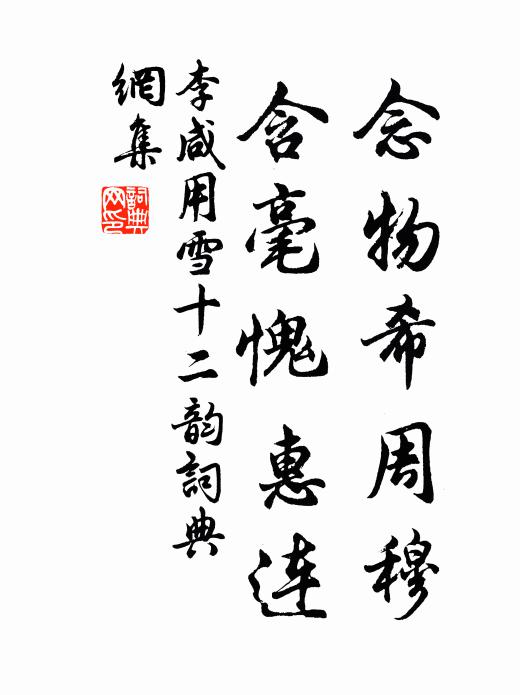 念物希周穆
含毫愧惠连
李咸用雪十二韵詞典
網集
詞典网印